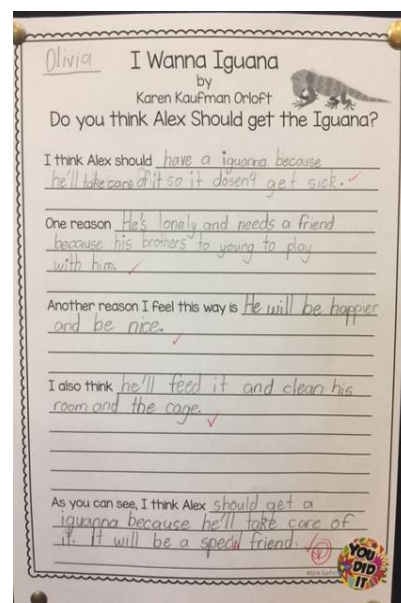 Olivia
I Wanna Iguana
by
Karen Kaufman Orloff
Do you think Alex Should get the Iguana?
I think Alex should have a iguanna because
he'll take care of it so it dosen't get sick.
One reason He's lonely and needs a friend
because his brothers to young to play
with him.
Another reason I feel this way is He will be happier
and be nice.
I also think he'll feed it and clean his
room and the cage.
As you can see, I think Alex should get a
iguanna because he'll take care of
it. It will be a special friend.
YOU
DID
IT